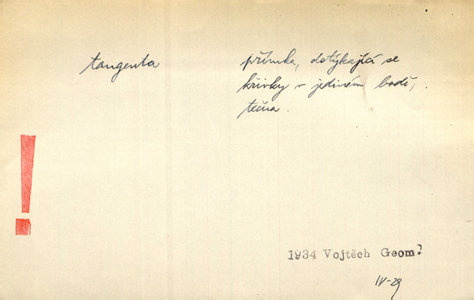 tangenta
přímka, dotýkající se
křivky v jediném bodě,
tečna.
!
1934 Vojtěch Geom.²
IV-29